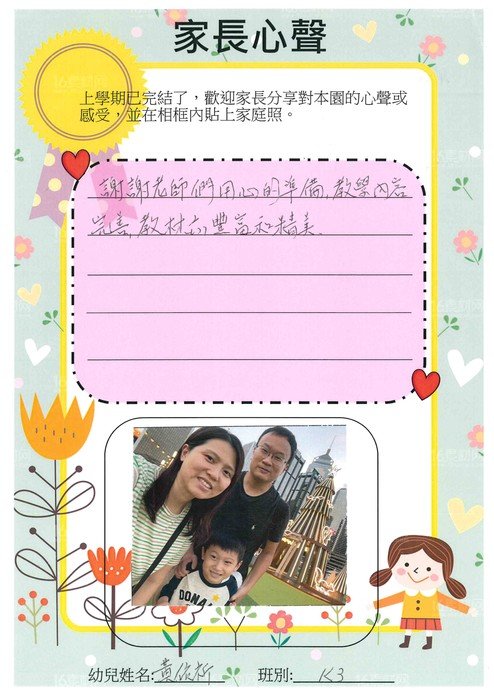 家長心聲
上學期已完結了，歡迎家長分享對本園的心聲或
感受，並在相框內貼上家庭照。
謝謝老師們用心的準備，教學內容
完善，教材亦豐富和精美。
DONA
幼兒姓名: 黃 班別: K3